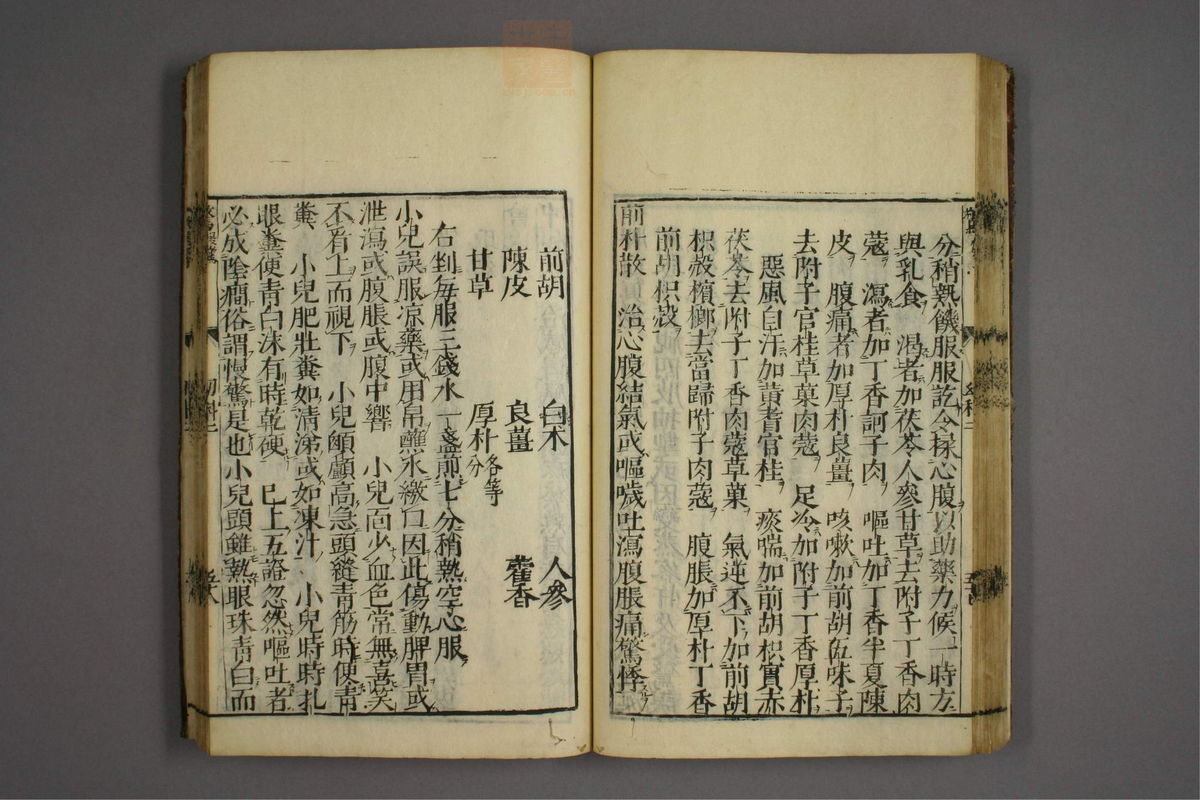 分稍熱飢服服訖令揉心腹以助藥力候一時方
與乳食 渴者加茯苓人參甘草去附子丁香肉
蔻 瀉者加丁香訶子肉 嘔吐加丁香半夏陳
皮 腹痛者加厚朴良薑 咳嗽加前胡五味子
去附子官桂草菓肉蔻 足冷加附子丁香厚朴
惡風自汗加黃耆官桂 痰喘加前胡枳實赤
茯苓去附子丁香肉蔻草菓 氣逆不下加前胡
枳殼檳榔去當歸附子肉蔻 腹脹加厚朴丁香
前胡枳殼
前朴散 治心腹結氣或嘔噦吐瀉腹脹痛驚悸
前胡 白朮 人參
陳皮 良薑 藿香
甘草 厚朴各等分
右剉每服三錢水一盞煎七分稍熱空心服
小兒誤服凉藥或用帛蘸水繳口因此傷動脾胃或
泄瀉或腹脹或腹中響 小兒面少血色常無喜笑
不看上而視下 小兒顖顱高急頭縫青筋時便青
糞 小兒肥壯糞如清涕或如凍汁 小兒時時扎
眼糞便青白沫有時乾硬 已上五證忽然嘔吐者
必成陰癇俗謂慢驚是也小兒頭雖熱眼珠青白而
幼科二